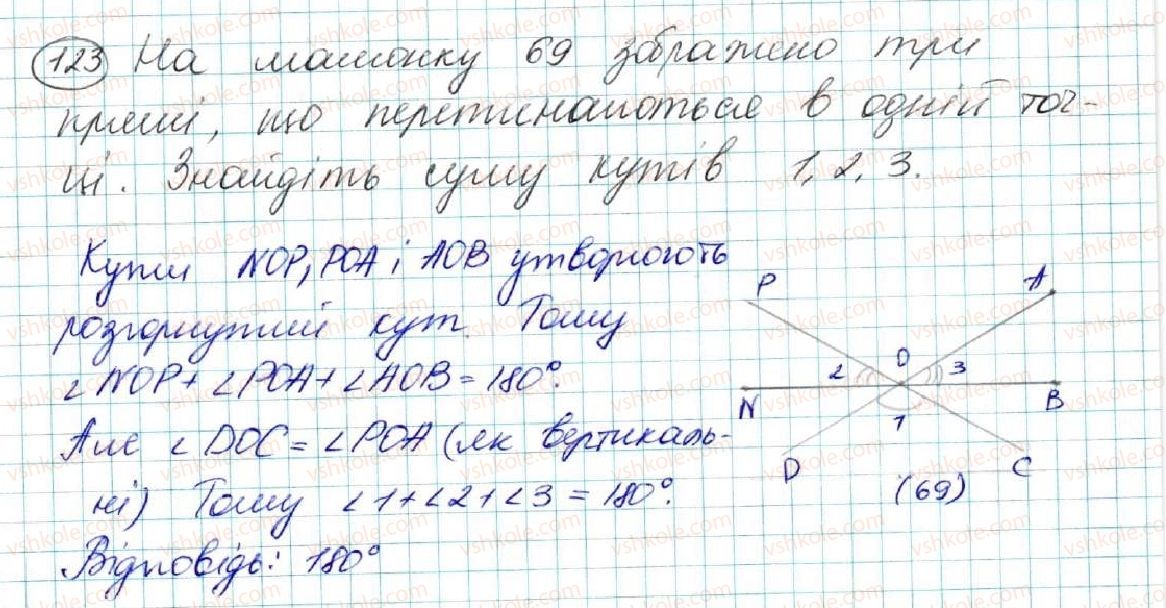 123 На малюнку 69 зображено три
прямі, що перетинаються в одній точ-
ці. Знайдіть суму кутів 1, 2, 3.
Кути NOP, POA і AOB утворюють
розгорнутий кут. Тому
∠NOP + ∠POA + ∠AOB = 180°.
Але ∠DOC = ∠POA (як вертикаль-
ні) Тому ∠1 + ∠2 + ∠3 = 180°.
Відповідь: 180°
P A
2 O 3
N 1 B
D C
(69)
vshkole.com